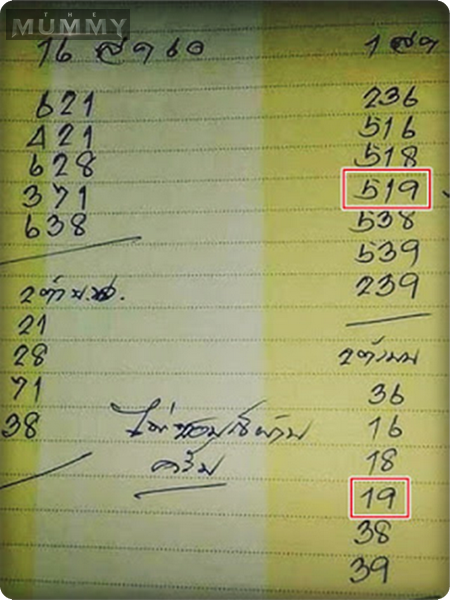 THE
MUMMY
16 ส.ค 60
621
421
628
371
638
2ตัว บ.ล.
21
28
71
38
ไม่ชอบก็ผ่าน
ครับ
1 ส.ค
236
516
518
519
538
539
239
2ตัวบน
36
16
18
19
38
39